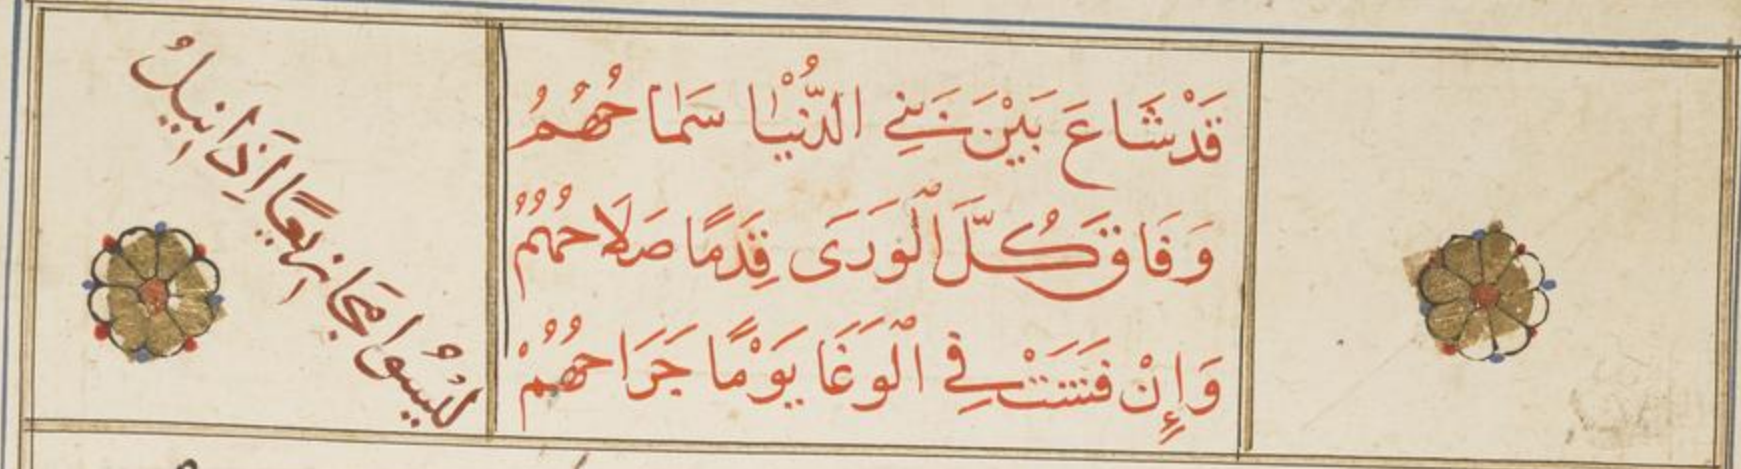 قَدْ شَاعَ بَيْنَ بَنِي الدُّنْيَا سَمَاحُهُمُ
وَفَاقَ كُلَّ الْوَرَى قِدَمًا صَلَاحُهُمُ
وَإِنْ فَشَتْ فِي الْوَغَا يَوْمًا جَرَاحُهُمْ
لَيْسُوا مَجَازِيعًا إِذَا نِيلُ